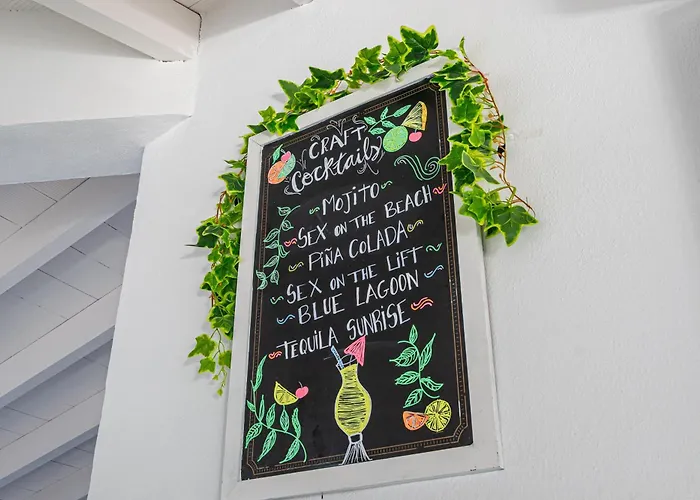 CRAFT
Cocktails
MOJITO
SEX ON THE BEACH
PIÑA COLADA
SEX ON THE LIFT
BLUE LAGOON
TEQUILA SUNRISE